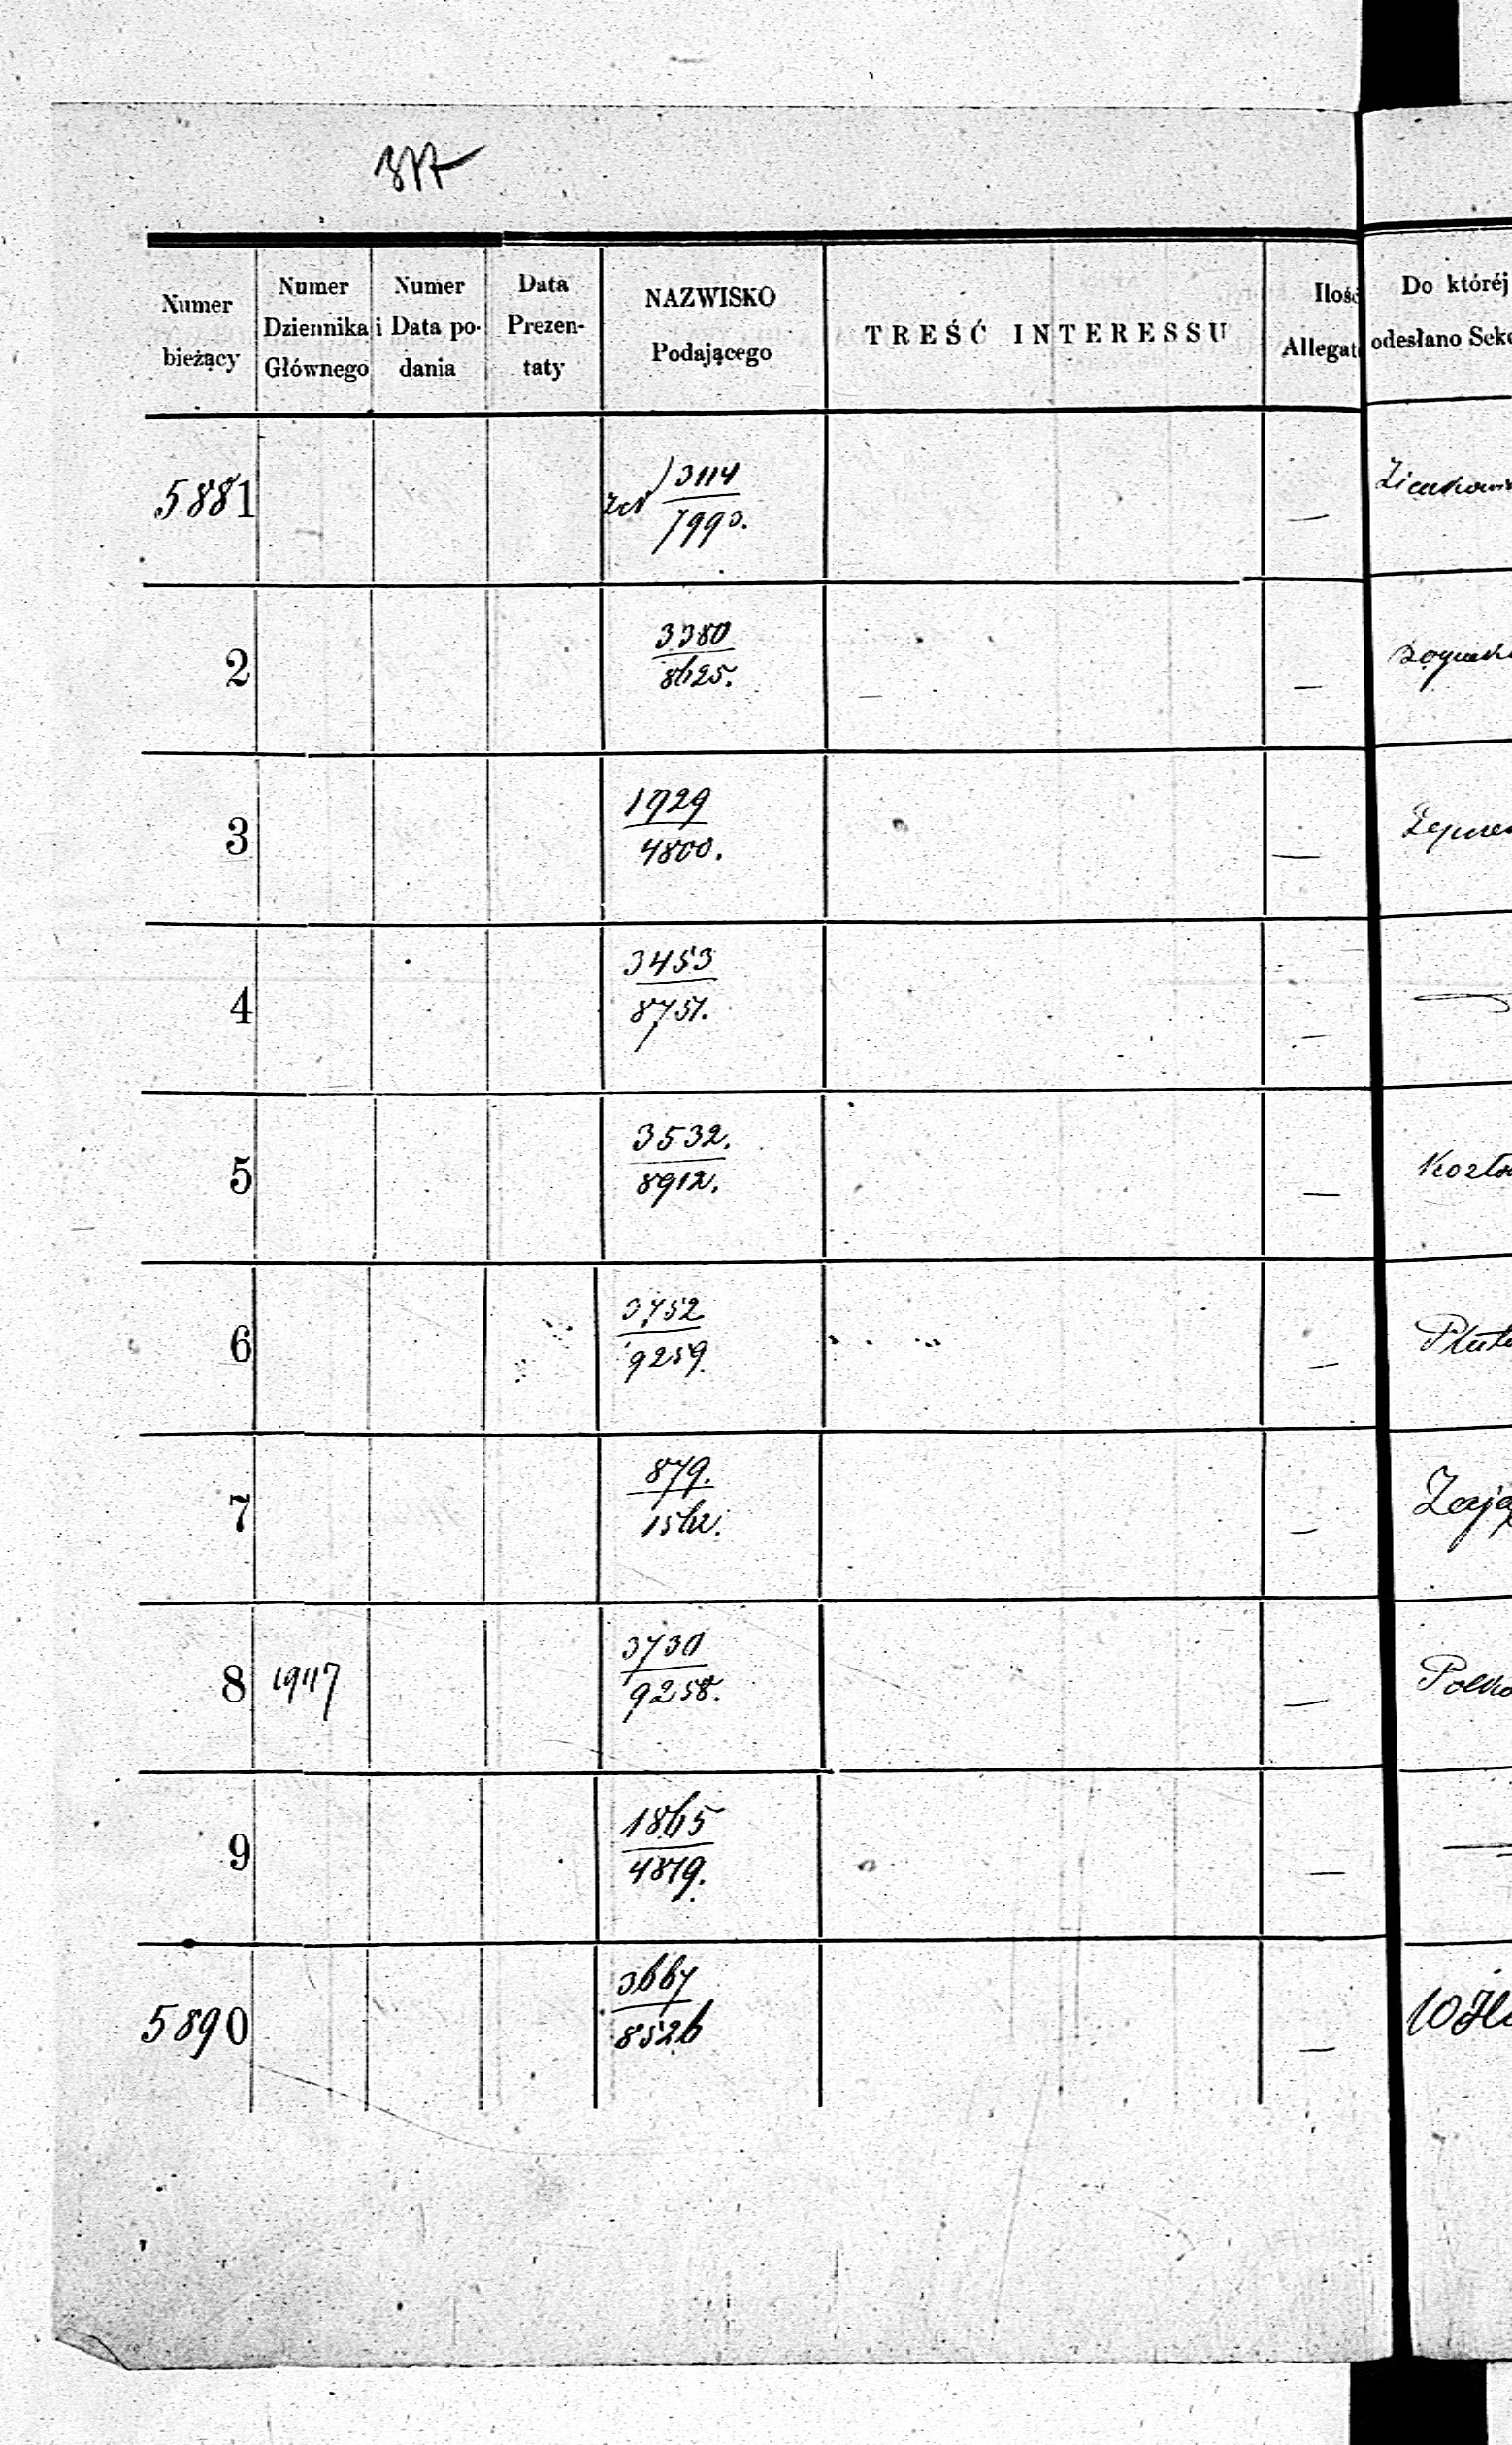 Numer bieżący
Numer Dziennika Głównego
Numer i Data podania
Data Prezentaty
NAZWISKO Podającego
TREŚĆ INTERESSU
Ilość Allegat
Do któréj odesłano Sek
5881 3114
7993.
2 3380
8625.
3 1729
4800.
4 3453
8751.
5 3532.
8912.
6 3752
9259.
7 879.
1562.
8 3730
9258.
9 1865
4819.
5890 3667
8526